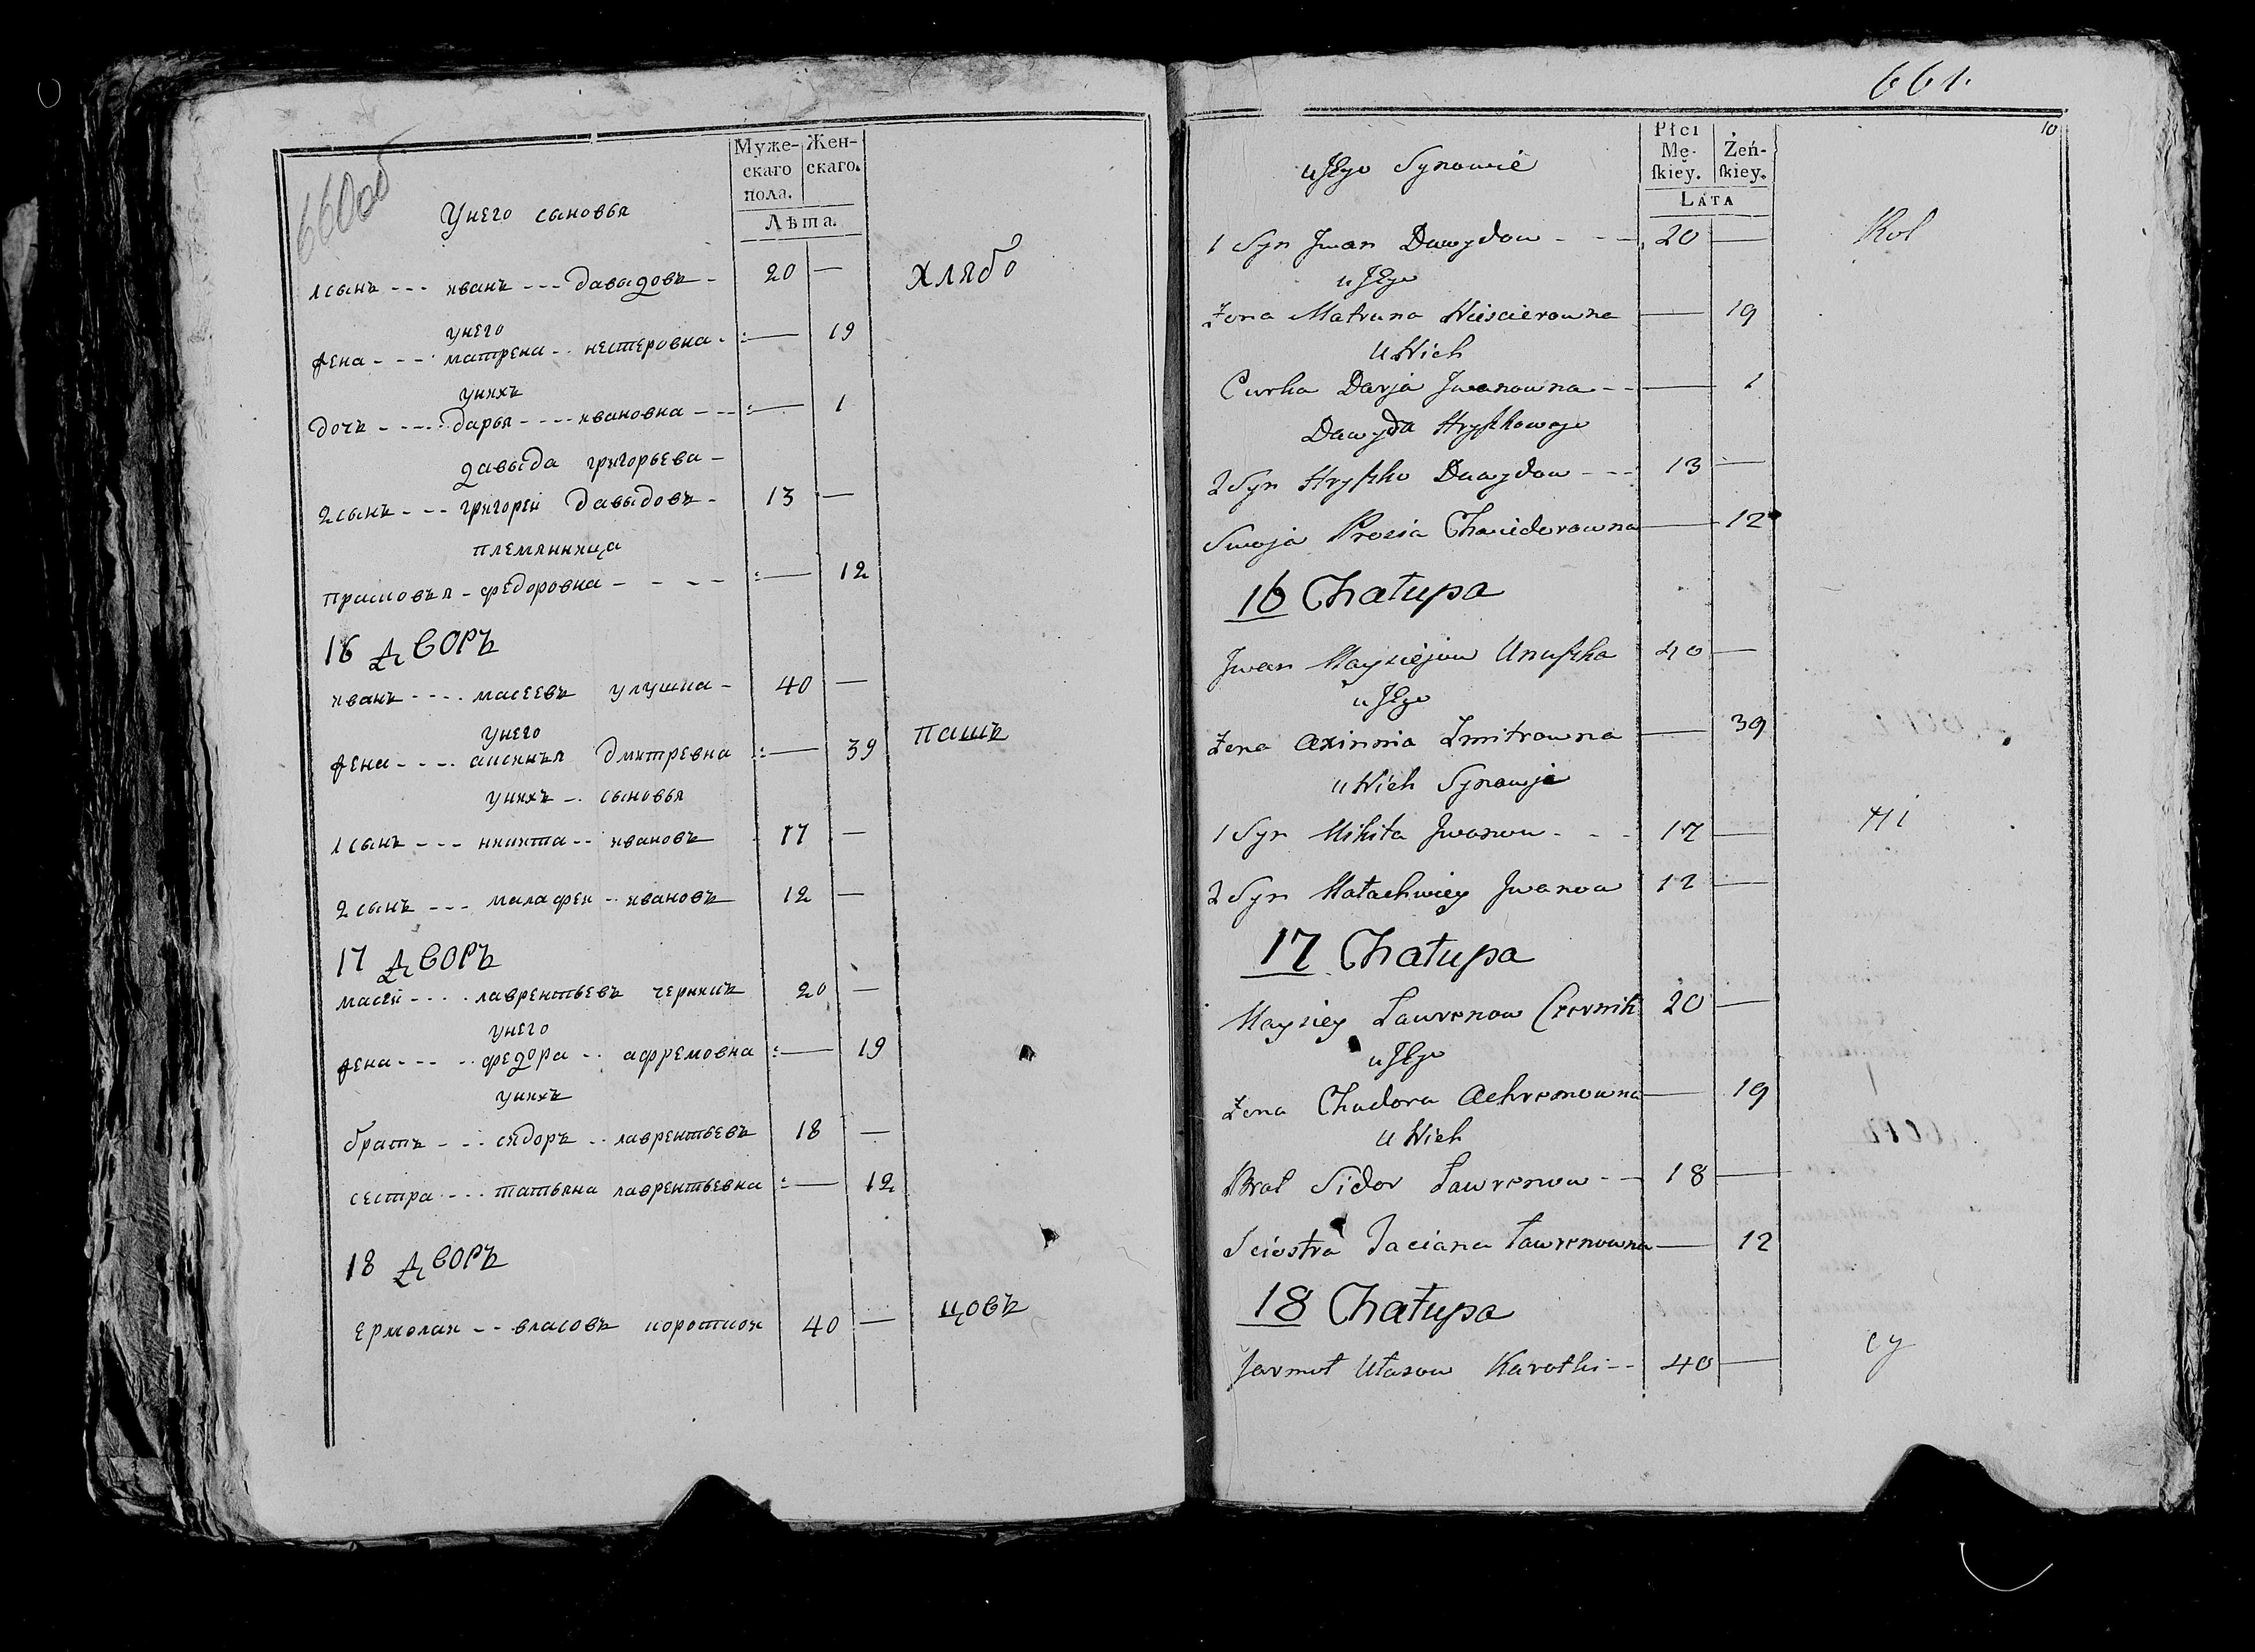 660об
Муже-
скаго
пола.
Жен-
скаго.
Лѣта.
Унего сыновья
1 сынъ --- иванъ --- давыдовъ - 20 —
хлѣбо
унего
жена --- матрена -- нестеровна - — 19
унихъ
дочъ --- дарья --- ивановна --- — 1
давыда григорьева -
2 сынъ --- григореи давыдовъ - 13 —
племянница
прасковъя - федоровна - - - - — 12
16 дворъ
иванъ ---- масеевъ улушка - 40 —
пашъ
унего
жена ---- аксинъя дмитревна — 39
унихъ -- сыновья
1 сынъ --- никита -- ивановъ 17 —
2 сынъ --- малафеи -- ивановъ 12 —
17 дворъ
масеи ---- лаврентьевъ черникъ 20 —
унего
жена ---- федора -- афремовна — 19
унихъ
братъ --- сидоръ -- лаврентьевъ 18 —
сестра --- татьяна лаврентьевна — 12
18 дворъ
цовъ
ермолаи -- власовъ короткои 40 —
661.
10
Płci
Mę-
ſkiey.
Żeń-
ſkiey.
LATA
u Jego Synowie
1 Syn Jwan Dawydow - - - 20 —
Rol
u Jego
Żona Matruna Niescierowna — 19
u Nich
Curka Darja Jwanowna -- — 1
Dawyda Hryszkowego
2 Syn Hryszko Dawydow --- 13 —
Swoja Prosia Chwiedorowna — 12
16 Chałupa
Jwan Maysiejow Unuszka 40 —
u Jego
Żona Axinnia Zmitrowna — 39
u Nich Synowje
1 Syn Mikita Jwanow - - - 17 —
ni
2 Syn Małachwiey Jwanow 12 —
17 Chałupa
Maysiey Ławrenow Czernik 20 —
u Jego
Żona Chadora Achremowna — 19
u Nich
Brat Sidor Ławrenow -- 18 —
Sciostra Taciana Ławrenowna — 12
18 Chałupa
Jarmoł Ułasow Karotki -- 40 —
cy